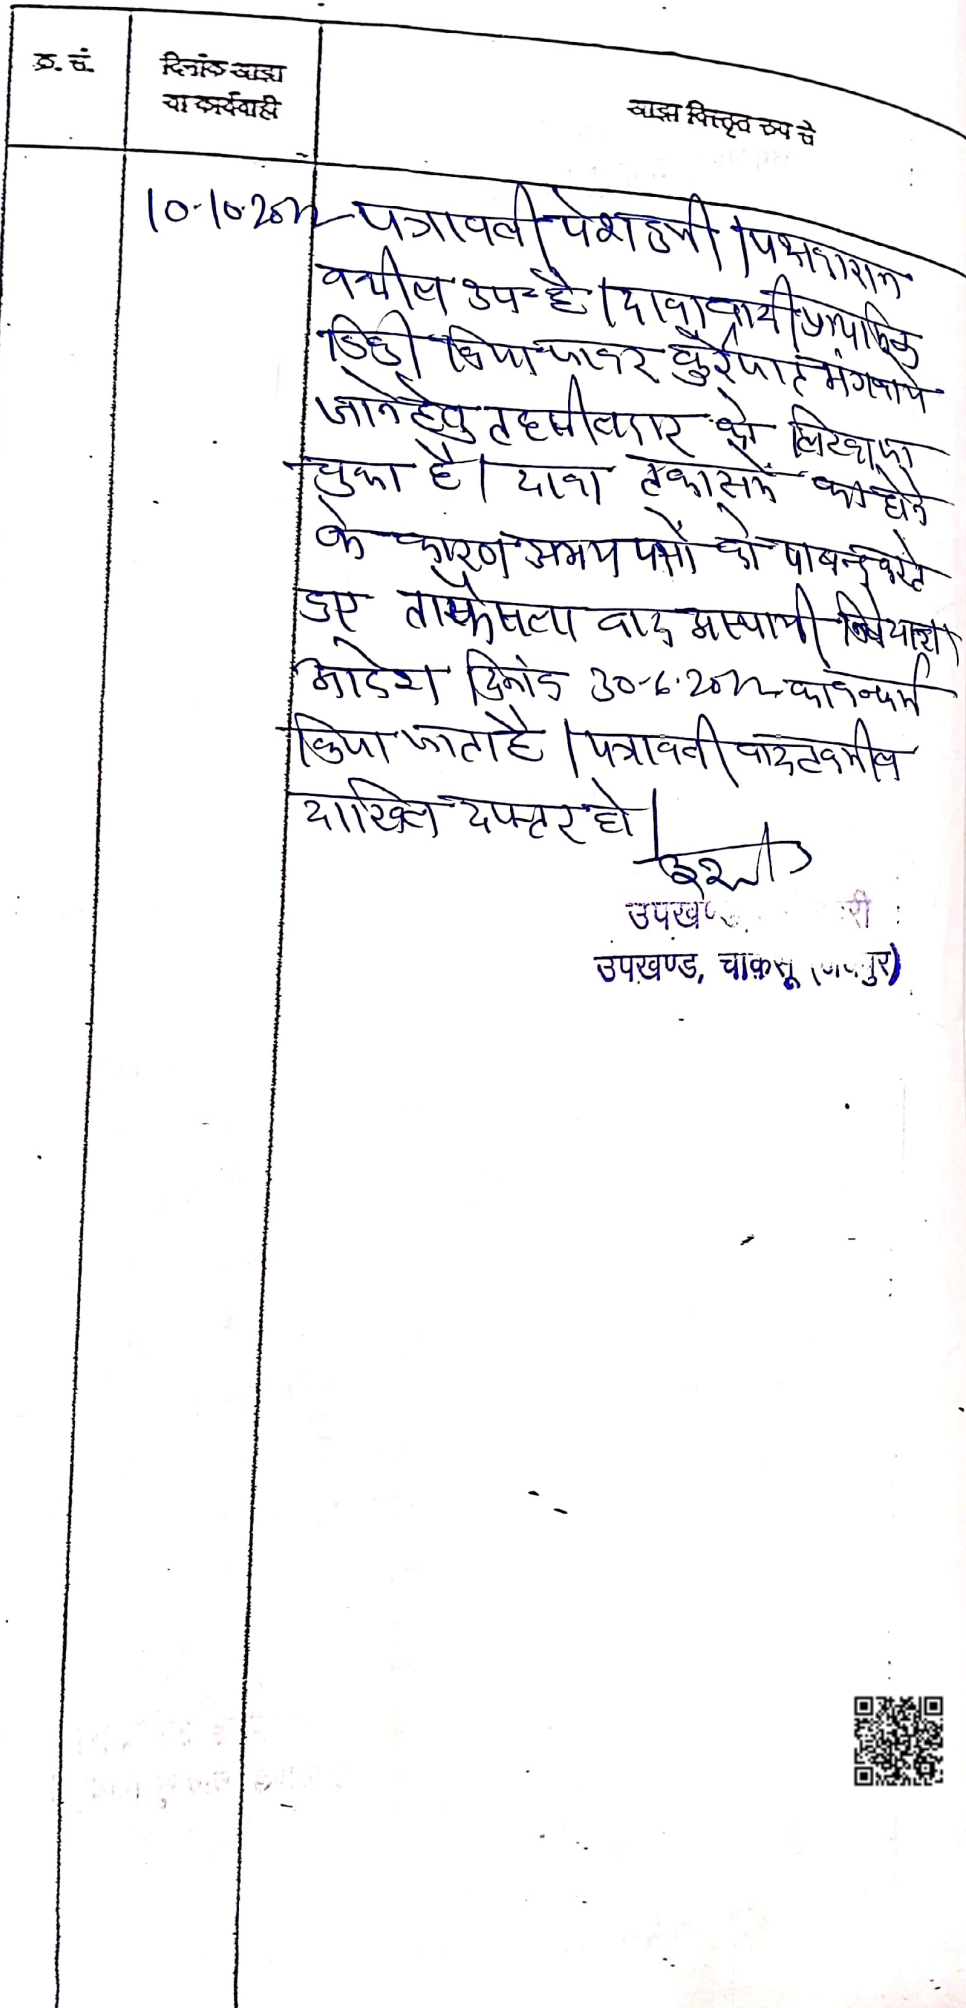 क्र. सं.
दिनांक आज्ञा
या कार्यवाही
आज्ञा विस्तृत रूप से
10.10.2022 पत्रावली पेश हुयी । पक्षकारान
वकील उप० है । दावा प्रार्थी प्राथमिक
डिक्री किया जाकर कुर्रेजात मंगवाये
जाने हेतु तहसीलदार को लिखा जा
चुका है । दावा तकासमें का होने
के कारण उभय पक्षों को पाबन्द करते
हुए ताफैसला वाद अस्थायी निषेधाज्ञा
आदेश दिनांक 30-6-2022 का कन्फर्म
किया जाता है । पत्रावली बाद तकमील
दाखिल दफ्तर हो ।
उपखण्ड
उपखण्ड, चाकसू (जयपुर)